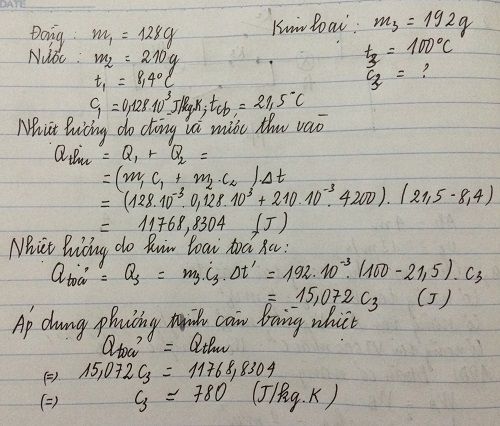 Đồng : m₁ = 128g
Nước : m₂ = 210g
t₁ = 8,4°C
c₁ = 0,128.10³ J/kg.K ; tcb = 21,5°C
Kim loại : m₃ = 192g
t₃ = 100°C
c₃ = ?
Nhiệt lượng do đồng và nước thu vào
Qthu = Q₁ + Q₂ =
= (m₁c₁ + m₂.c₂).Δt
= (128.10⁻³.0,128.10³ + 210.10⁻³.4200).(21,5-8,4)
= 11768,8304 (J)
Nhiệt lượng do kim loại toả ra:
Qtoả = Q₃ = m₃.c₃.Δt' = 192.10⁻³(100-21,5).c₃
= 15,072 c₃ (J)
Áp dụng phương trình cân bằng nhiệt
Qtoả = Qthu
(=) 15,072 c₃ = 11768,8304
(=) c₃ ≃ 780 (J/kg.K)